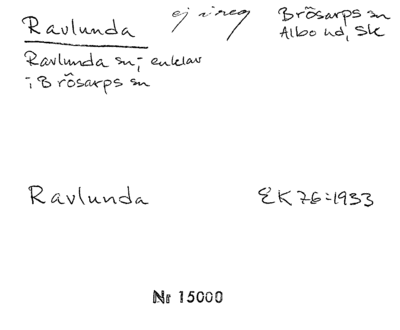 Ravlunda
ej i reg
Brösarps sn
Albo hd, Sk
Ravlunda sn;- enklav
i Brösarps sn
Ravlunda
EK 76:1933
Nr 15000